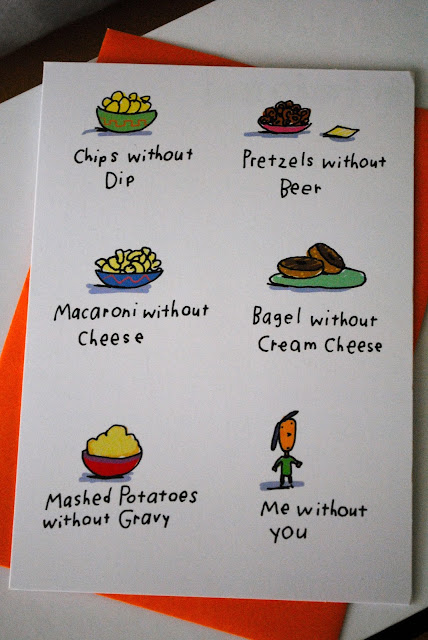 Chips without
Dip
Pretzels without
Beer
Macaroni without
Cheese
Bagel without
Cream Cheese
Mashed Potatoes
without Gravy
Me without
you